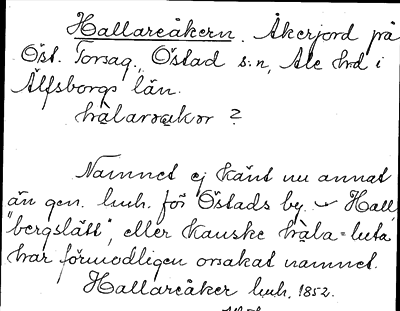 Hallareåkern. Åkerjord på
Öst. Torsag., Östad s:n, Ale hd i
Älfsborgs län.
hą̈larɷąkɷr ?
Namnet ej känt nu annat
än gen. luh. för Östads by. Hall,
"bergslätt", eller kanske hą̈la = luta
har förmodligen orsakat namnet.
Hallareåker luh. 1852.